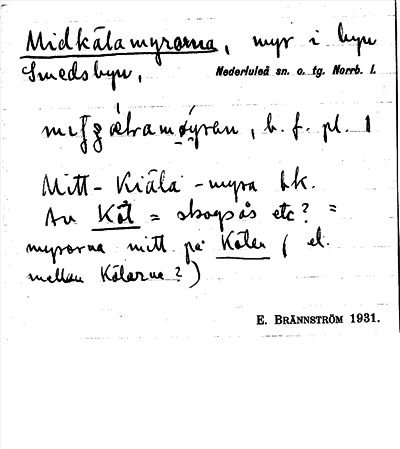 Midkälamyrorna, myr i byn
Smedsbyn, Nederluleå sn. o. tg. Norrb. l.
b. f. pl. 1
Mitt-Kiäla-myra hk.
Av Köl = skogsås etc? =
myrorna mitt på Kölen (el.
mellan Kölarna?)
E. BRÄNNSTRÖM 1931.